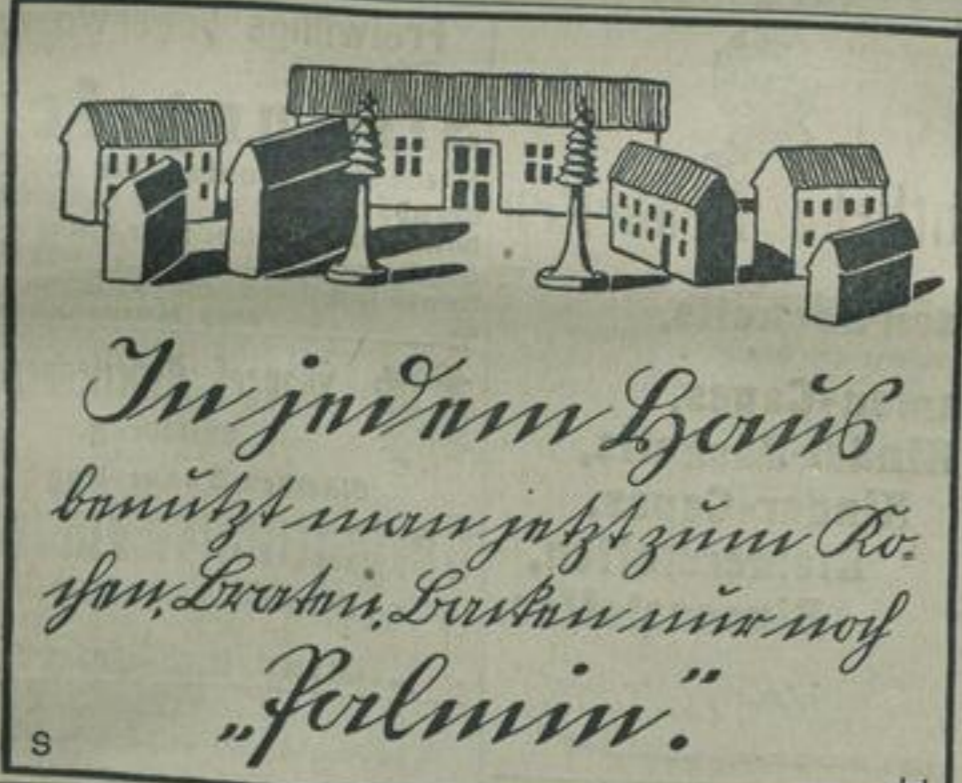 In jedem Haus
benutzt man jetzt zum Ko-
chen, Braten, Backen nur noch
„Palmin".
S